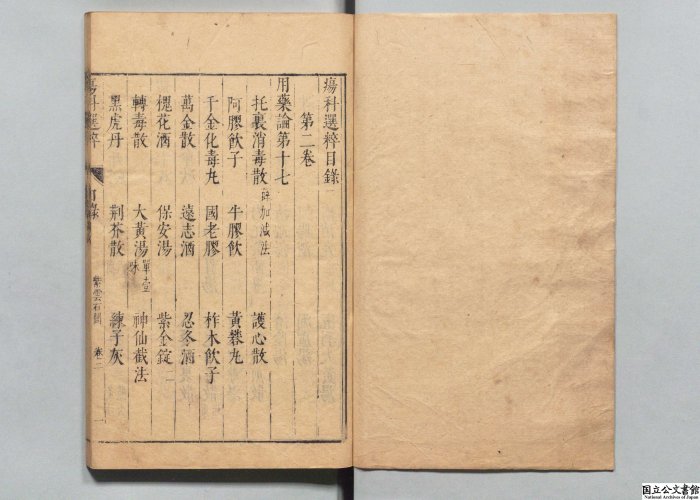 瘍科選粹目錄
第二卷
用藥論第十七
托裏消毒散 詳加減法 護心散
阿膠飲子 牛膠飲 黃礬丸
千金化毒丸 國老膠 柞木飲子
萬金散 遠志酒 忍冬酒
槐花酒 保安湯 紫金錠
轉毒散 大黃湯 單壹味 神仙截法
黑虎丹 荆芥散 練子灰
瘍科選粹 目錄 紫雲石 卷二
国立公文書館
National Archives of Japan